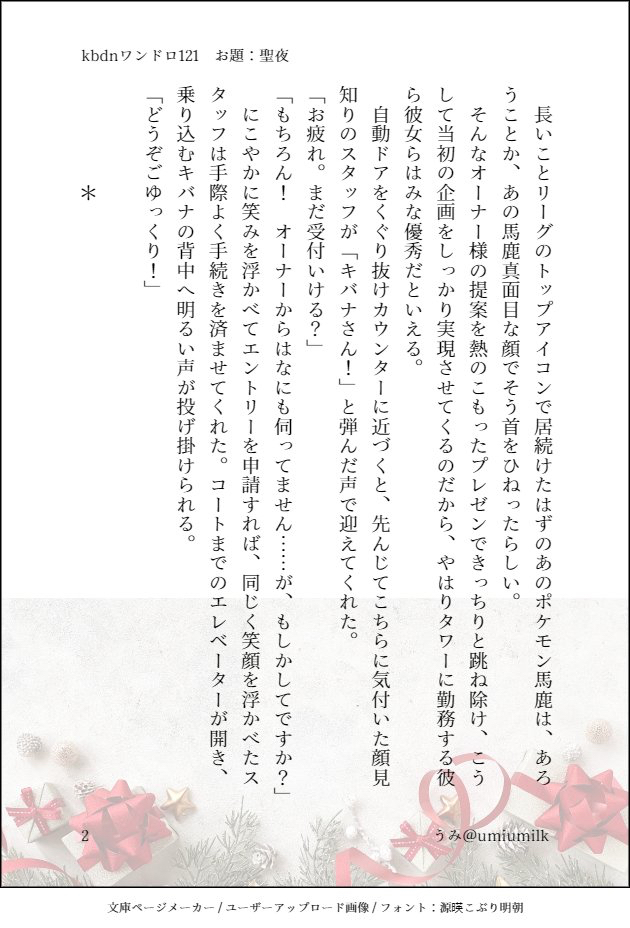 kbdnワンドロ121　お題：聖夜
　長いことリーグのトップアイコンで居続けたはずのあのポケモン馬鹿は、あろ
うことか、あの馬鹿真面目な顔でそう首をひねったらしい。
　そんなオーナー様の提案を熱のこもったプレゼンできっちりと跳ね除け、こう
して当初の企画をしっかり実現させてくるのだから、やはりタワーに勤務する彼
ら彼女らはみな優秀だといえる。
　自動ドアをくぐり抜けカウンターに近づくと、先んじてこちらに気付いた顔見
知りのスタッフが「キバナさん！」と弾んだ声で迎えてくれた。
「お疲れ。まだ受付いける？」
「もちろん！　オーナーからはなにも伺ってません……が、もしかしてですか？」
　にこやかに笑みを浮かべてエントリーを申請すれば、同じく笑顔を浮かべたス
タッフは手際よく手続きを済ませてくれた。コートまでのエレベーターが開き、
乗り込むキバナの背中へ明るい声が投げ掛けられる。
「どうぞごゆっくり！」
＊
2
うみ@umiumilk
文庫ページメーカー / ユーザーアップロード画像 / フォント：源暎こぶり明朝